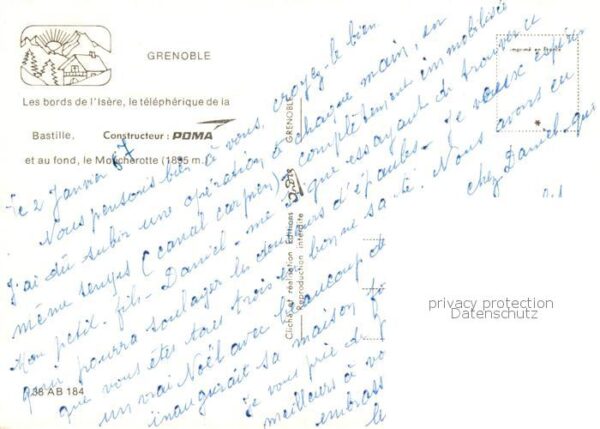 GRENOBLE
Les bords de l'Isère, le téléphérique de la
Bastille, Constructeur : POMA
et au fond, le Moucherotte (1895 m.)
38 AB 184
GRENOBLE
Clichés et réalisation Editions
Reproduction interdite
Imprimé en France
le 2 Janvier 87
Nous pensons bien à vous, croyez-le bien.
J'ai dû subir une opération, à chaque main, en
même temps (canal carpien) complètement immobilisée
Mon petit-fils - Daniel - me essayant de trouver ce
qui pourra soulager les douleurs d'épaules - Je veux espérer
que vous êtes tous trois en bonne santé. Nous avons eu
un vrai Noël avec beaucoup de
chez Daniel qui
inaugurait sa maison
je vous prie de
meilleurs à vo
embrass
le
privacy protection
Datenschutz